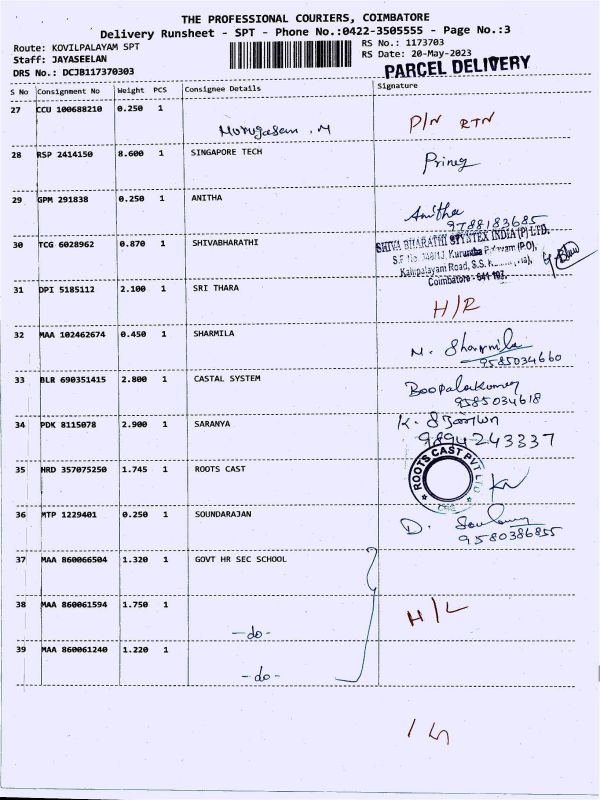 THE PROFESSIONAL COURIERS, COIMBATORE
Delivery Runsheet - SPT - Phone No.:0422-3505555 - Page No.:3
Route: KOVILPALAYAM SPT
RS No.: 1173703
Staff: JAYASEELAN
RS Date: 20-May-2023
DRS No.: DCJB117370303
PARCEL DELIVERY
S No Consignment No Weight PCS Consignee Details Signature
27 CCU 100688210 0.250 1
Murugasan . M P/N RTN
28 RSP 2414150 8.600 1 SINGAPORE TECH
29 GPM 291838 0.250 1 ANITHA Anitha
9788183685
30 TCG 6028962 0.870 1 SHIVABHARATHI
SHIVA BHARATHI SPYNTEX INDIA (P) LTD.
S.F No. 348/1J, Kurumba (P.O),
Kalipalayam Road, S.S.
Coimbatore - 641 107.
31 DPI 5185112 2.100 1 SRI THARA H/R
32 MAA 102462674 0.450 1 SHARMILA M. Sharmila
9585034660
33 BLR 690351415 2.800 1 CASTAL SYSTEM
9585034618
34 PDK 8115078 2.900 1 SARANYA K.
9894243337
35 HRD 357075250 1.745 1 ROOTS CAST ROOTS CAST PVT LTD
36 MTP 1229401 0.250 1 SOUNDARAJAN D.
9580386855
37 MAA 860066504 1.320 1 GOVT HR SEC SCHOOL
38 MAA 860061594 1.750 1 H/L
-do-
39 MAA 860061240 1.220 1
-do-